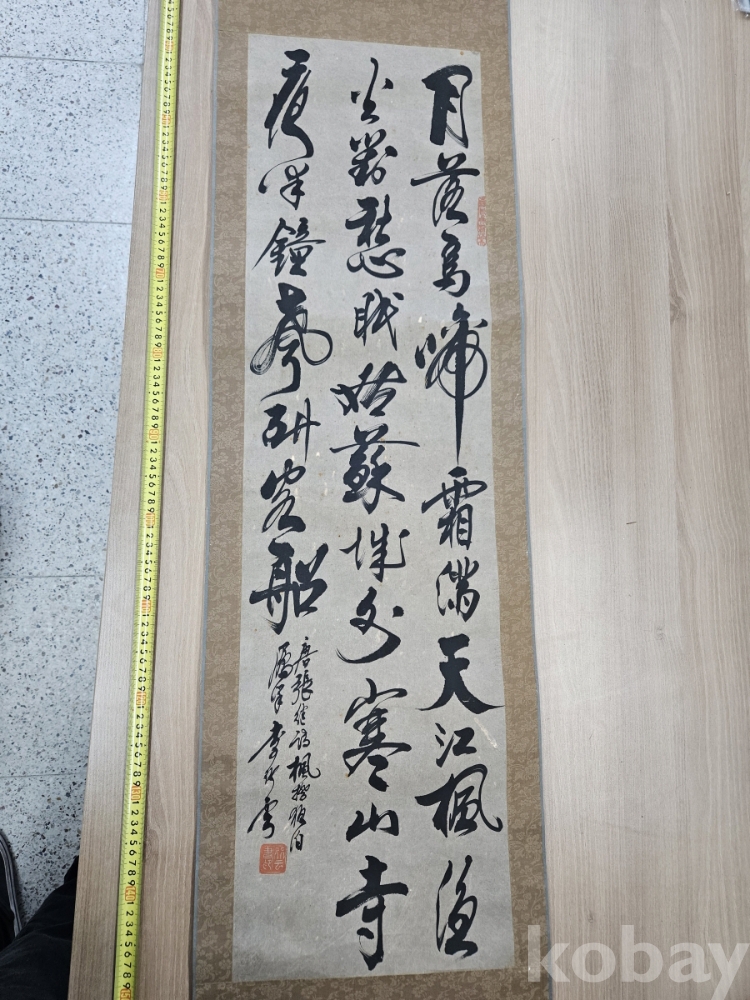 月落烏啼霜滿天江楓漁
火對愁眠姑蘇城外寒山寺
夜半鐘聲到客船
唐張繼詩楓橋夜泊
李
kobay